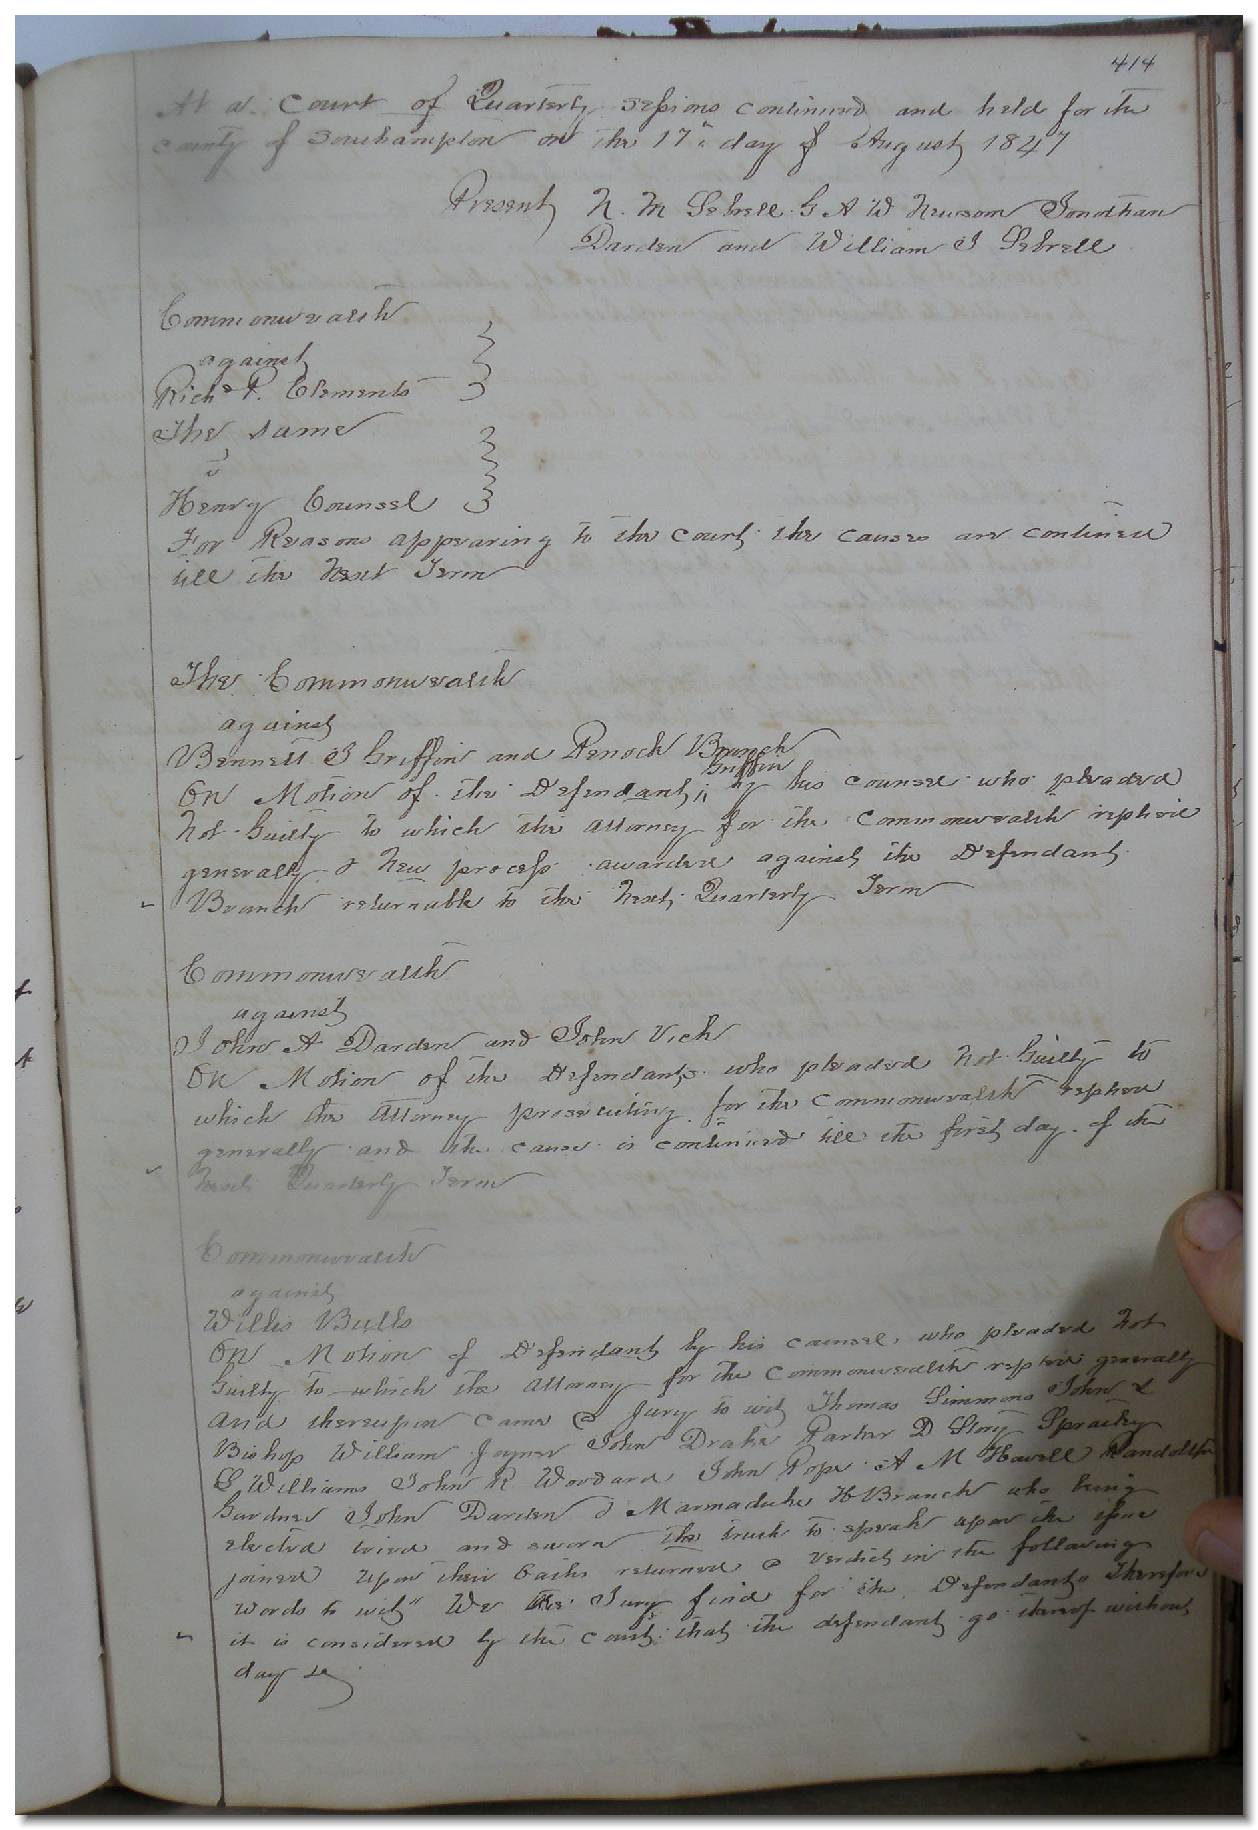 414
At a Court of Quarterly Sessions continued and held for the
County of Southampton on the 17th day of August 1847
Present N. M Sebrell G A W Newsom Jonathan
Darden and William J Sebrell
Commonwealth
against
Richd P. Clements
The same
v
Henry Counsel
For Reasons appearing to the court the causes are continued
till the Next Term
The Commonwealth
against
Bennett J Griffin and Penock Branch
Griffin
On Motion of the Defendant by his counsel who pleaded
Not Guilty to which the attorney for the Commonwealth replied
generally & New process awarded against the Defendant
Branch returnable to the Next Quarterly Term
Commonwealth
against
John A Darden and John Vick
On Motion of the Defendants who pleaded Not Guilty to
which the Attorney prosecuting for the Commonwealth replied
generally and the cause is continued till the first day of the
Next Quarterly Term
Commonwealth
against
Willis Bulls
On Motion of Defendant by his counsel who pleaded Not
Guilty to which the attorney for the Commonwealth replied generally
and thereupon came a Jury to wit Thomas Simmons John L
Bishop William Joyner John Drake Parker D Story Spratley
Williams John R Woodard John Pope A M Howell Randolph
Gardner John Darden & Marmaduke H Branch who being
elected tried and sworn the truth to speak upon the issue
joined upon their Oaths returned a verdict in the following
words to wit" We the Jury find for the Defendant" Therefore
it is considered by the Court that the defendant go thereof without
day &c